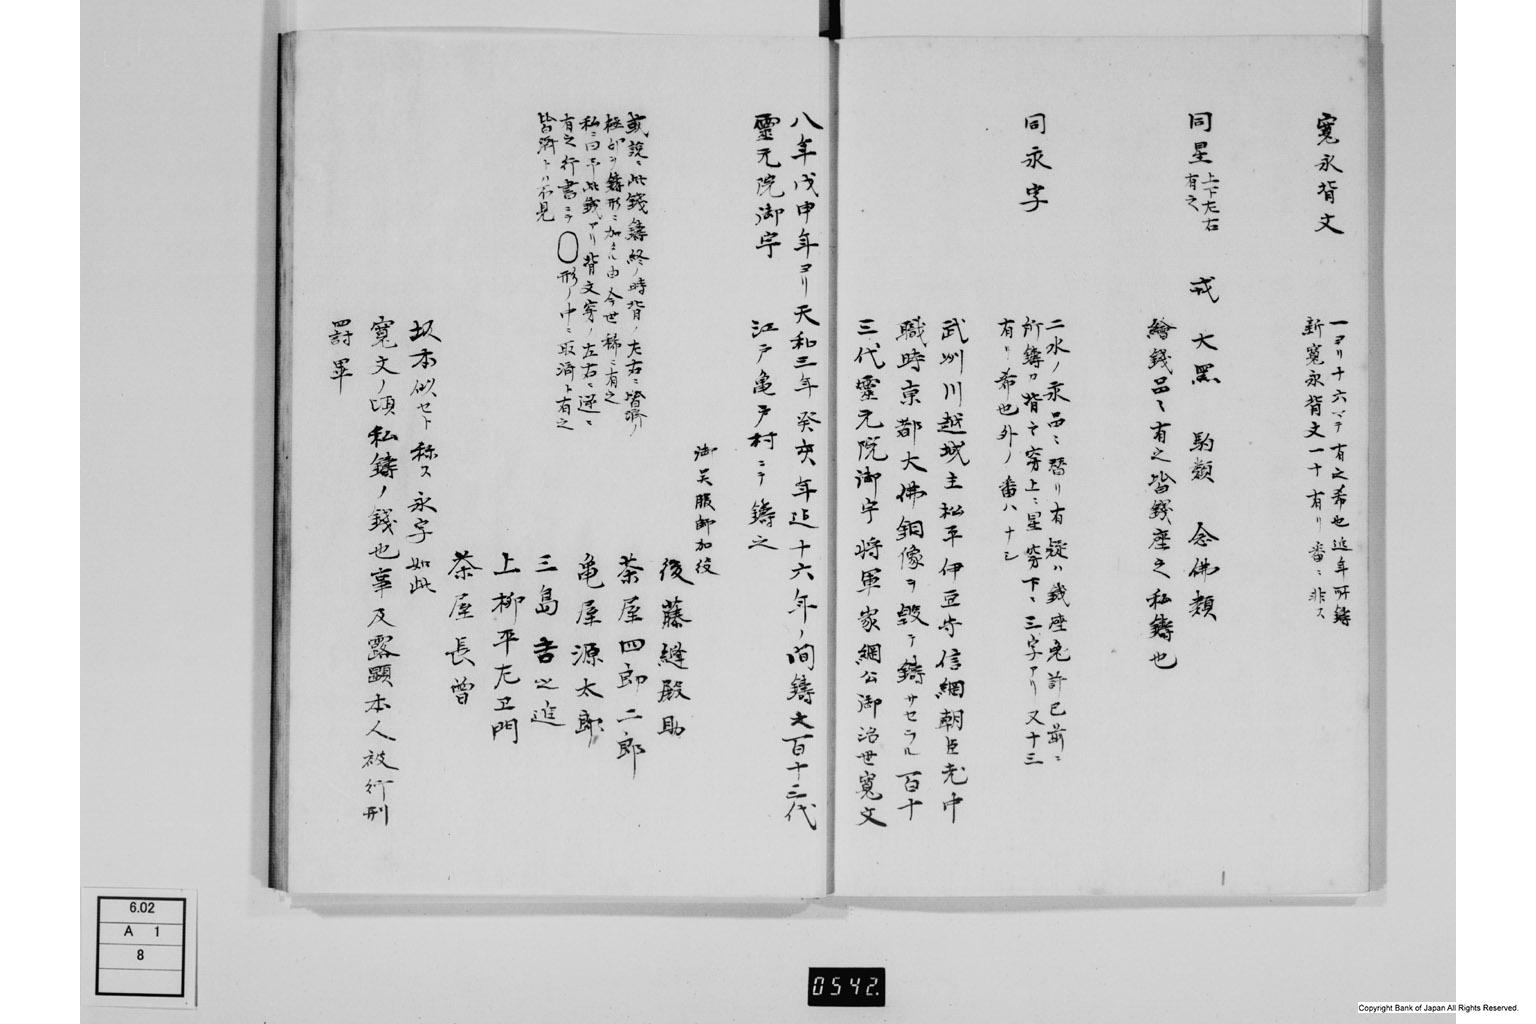 寛永背文
一ヨリ十六マデ有之希也近年所鋳
新寛永背文一十有リ番ニ非ス
同星 上下左右
有之
戎 大黒 駒類 念佛類
繪錢品々有之皆錢座之私鋳也
同永字
二水ノ永品ニ替リ有疑ハ錢座免許已前ニ
所鋳カ背文穿上ニ星穿下ニ三字アリ又十三
有リ希也外ノ番ハナシ
武州川越城主松平伊豆守信綱朝臣老中
職時京都大佛銅像ヲ毀テ鋳サセラル百十
三代靈元院御宇将軍家綱公御治世寛文
八年戊申年ヨリ天和三年癸亥年迄十六年ノ間鋳文百十三代
靈元院御宇 江戸亀戸村ニテ鋳之
御呉服師加役
後藤縫殿助
茶屋四郎二郎
亀屋源太郎
三島吉之進
上柳平左ヱ門
茶屋長曽
或説ニ此錢鋳終ノ時背ノ左右ニ皆濟ノ
極印ヲ鋳形ニ加ヱル由今世稀ニ有之
私ニ曰此錢アリ背文穿ノ左右ニ逆ニ
有之行書ニテ〇形ノ中ニ取済ト有之
皆濟トハ不見
坂本似セト称ス永字如此
寛文ノ頃私鋳ノ錢也事及露顕本人被行刑
罰畢
6.02
A 1
8
0542.
Copyright Bank of Japan All Rights Reserved.